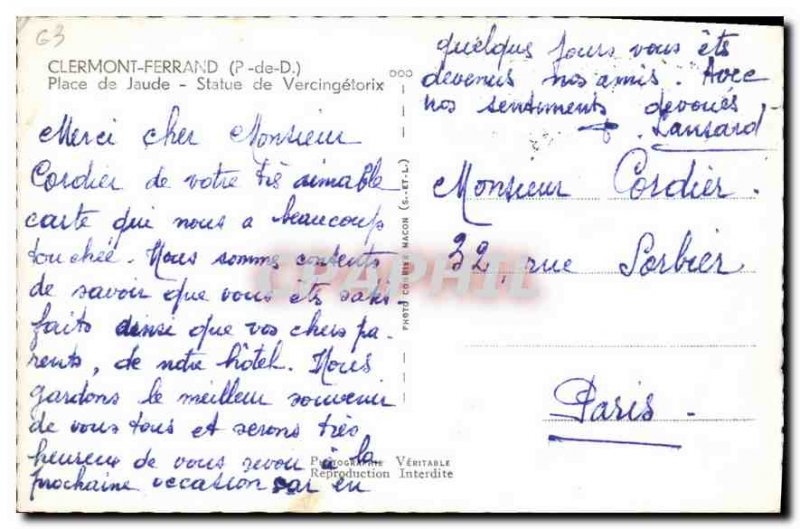 63
CLERMONT-FERRAND (P-de-D.)
Place de Jaude - Statue de Vercingétorix
Merci cher Monsieur
Cordier de votre très aimable
carte qui nous a beaucoup
touchée. Nous somms contents
de savoir que vous êts satis
faits ainsi que vos chers pa-
rents, de notre hôtel. Nous
gardons le meilleur souvenir
de vous tous et serons très
heureux de vous revoir à la
prochaine occasion car en
quelqus jours vous êts
devenus nos amis. Avec
nos sentiments devoués
Lansard
Monsieur Cordier.
32, rue Sorbier
Paris.
PHOTO COMBIER MACON (S.-ET-L.)
PHOTOGRAPHIE VÉRITABLE
Reproduction Interdite
CPAPHIL